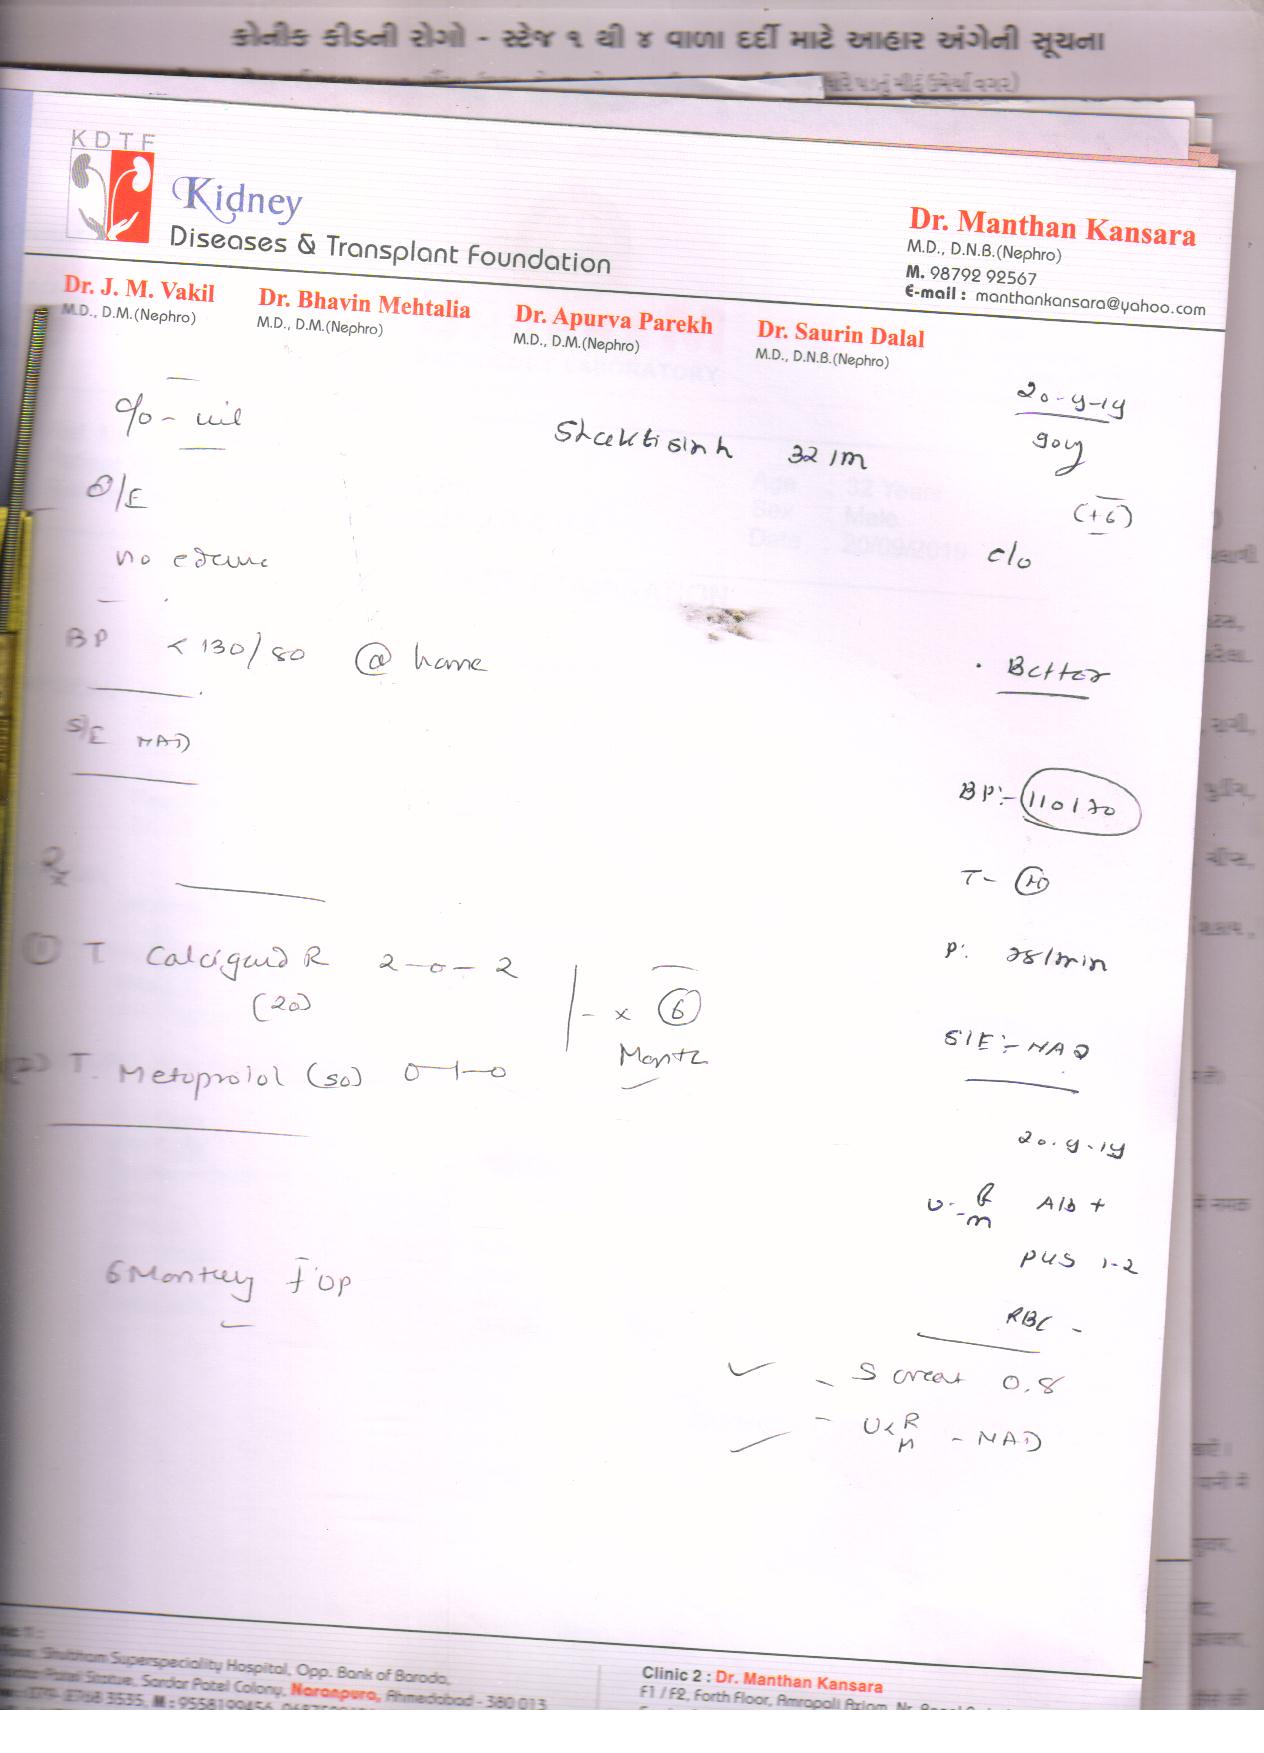 ક્રોનીક કીડની રોગો - સ્ટેજ ૧ થી ૪ વાળા દર્દી માટે આહાર અંગેની સૂચના
KDTF
Kidney
Diseases & Transplant Foundation
Dr. Manthan Kansara
M.D., D.N.B.(Nephro)
M. 98792 92567
E-mail : manthankansara@yahoo.com
Dr. J. M. Vakil
M.D., D.M.(Nephro)
Dr. Bhavin Mehtalia
M.D., D.M.(Nephro)
Dr. Apurva Parekh
M.D., D.M.(Nephro)
Dr. Saurin Dalal
M.D., D.N.B.(Nephro)
20-9-19
c/o - nil
Shaktisinh 32/M
(+6)
O/E
no edema
c/o
BP < 130/80 @ home
. Better
S/E NAD
BP:- 110/70
Rx
T- N
P: 78/min
(1) T. Calcigard R 2-0-2
(20)
- x 6
Month
S/E:- NAD
(2) T. Metoprolol (50) 0-1-0
20.9.19
U- R/M Alb +
PUS 1-2
RBC -
6 Monthly F'up
- S creat 0.8
- U< R/M - NAD
Shubham Superspeciality Hospital, Opp. Bank of Baroda,
Sardar Patel Statue, Sardar Patel Colony, Naranpura, Ahmedabad - 380 013
3535, M : 9558199456
Clinic 2 : Dr. Manthan Kansara
F1 / F2, Forth Floor, Amrapali Axiom, Nr.